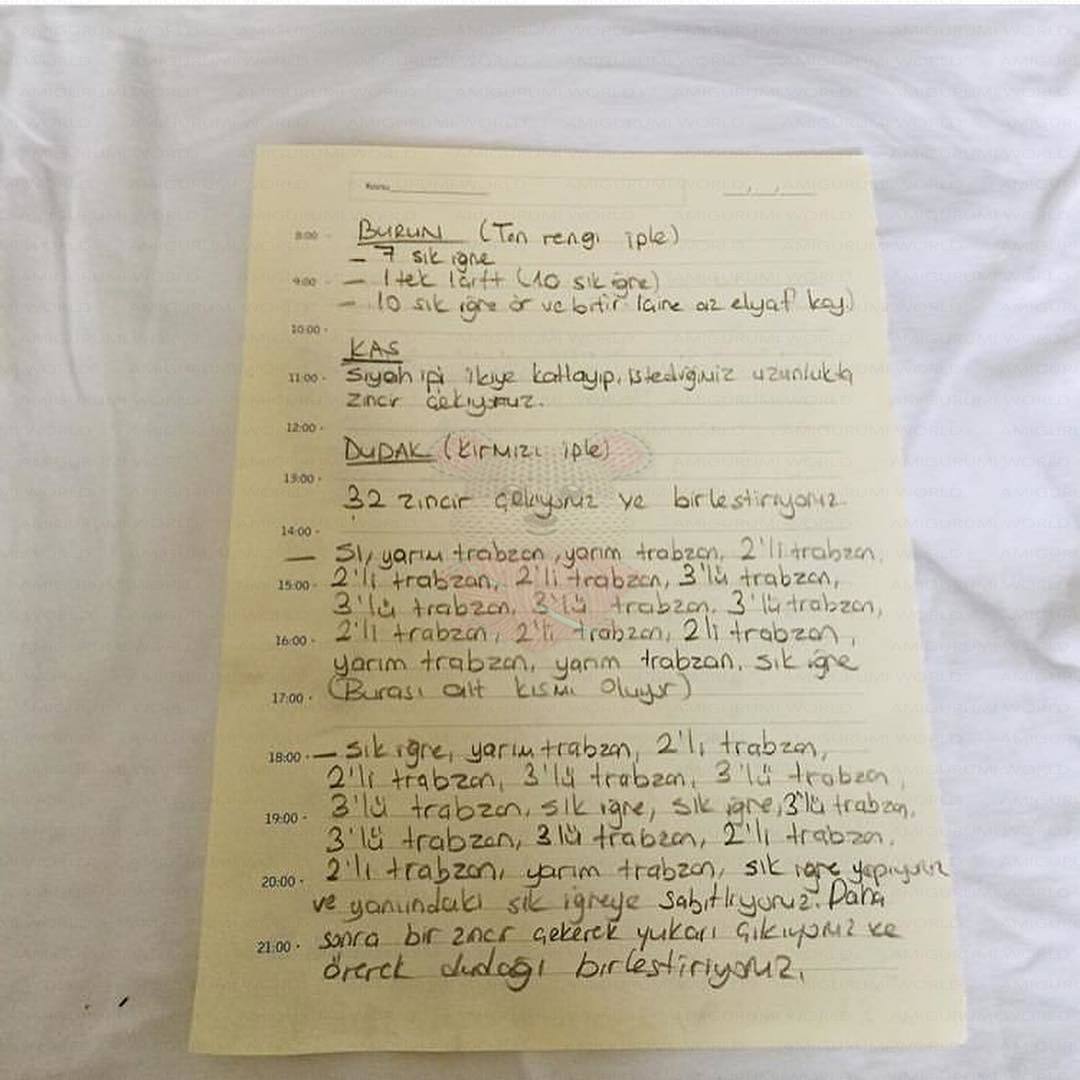 Konu:
8:00 BURUN (Ten rengi iple)
- 7 sık iğne
9:00 - 1 tek 1 arttı (10 sık iğne)
- 10 sık iğne ör ve bitir (içine az elyaf koy.)
10:00
KAŞ
11:00 Siyah ipi ikiye katlayıp, istediğimiz uzunlukta
zincir çekiyoruz.
12:00
DUDAK (Kırmızı iple)
13:00
32 zincir çekiyoruz ve birleştiriyoruz.
14:00
- Sı, yarım trabzan, yarım trabzan, 2'li trabzan,
15:00 2'li trabzan, 2'li trabzan, 3'lü trabzan,
3'lü trabzan, 3'lü trabzan, 3'lü trabzan,
16:00 2'li trabzan, 2'li trabzan, 2li trabzan,
yarım trabzan, yarım trabzan, sık iğne
17:00 (Burası alt kısmı oluyor)
18:00 - Sık iğne, yarım trabzan, 2'li trabzan,
2'li trabzan, 3'lü trabzan, 3'lü trabzan,
19:00 3'lü trabzan, sık iğne, sık iğne, 3'lü trabzan,
3'lü trabzan, 3lü trabzan, 2'li trabzan,
20:00 2'li trabzan, yarım trabzan, sık iğne yapıyoruz
ve yanındaki sık iğneye sabitliyoruz. Daha
21:00 sonra bir zincir çekerek yukarı çıkıyoruz ve
örerek dudağı birleştiriyoruz.
AMIGURUMI WORLD